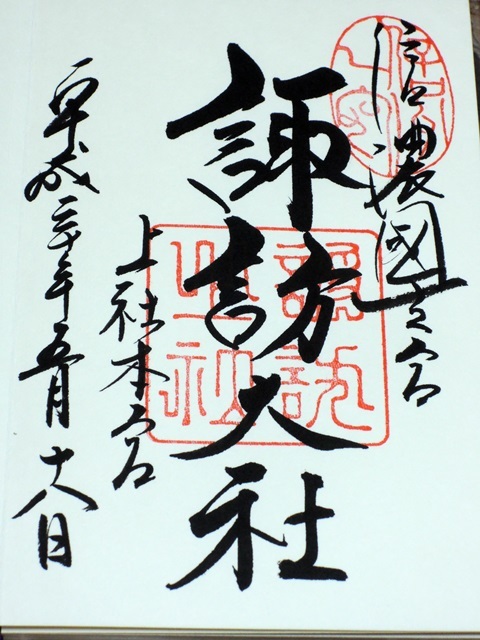 信濃國一之宮
諏訪大社
上社本宮
平成二十年五月十八日
諏訪